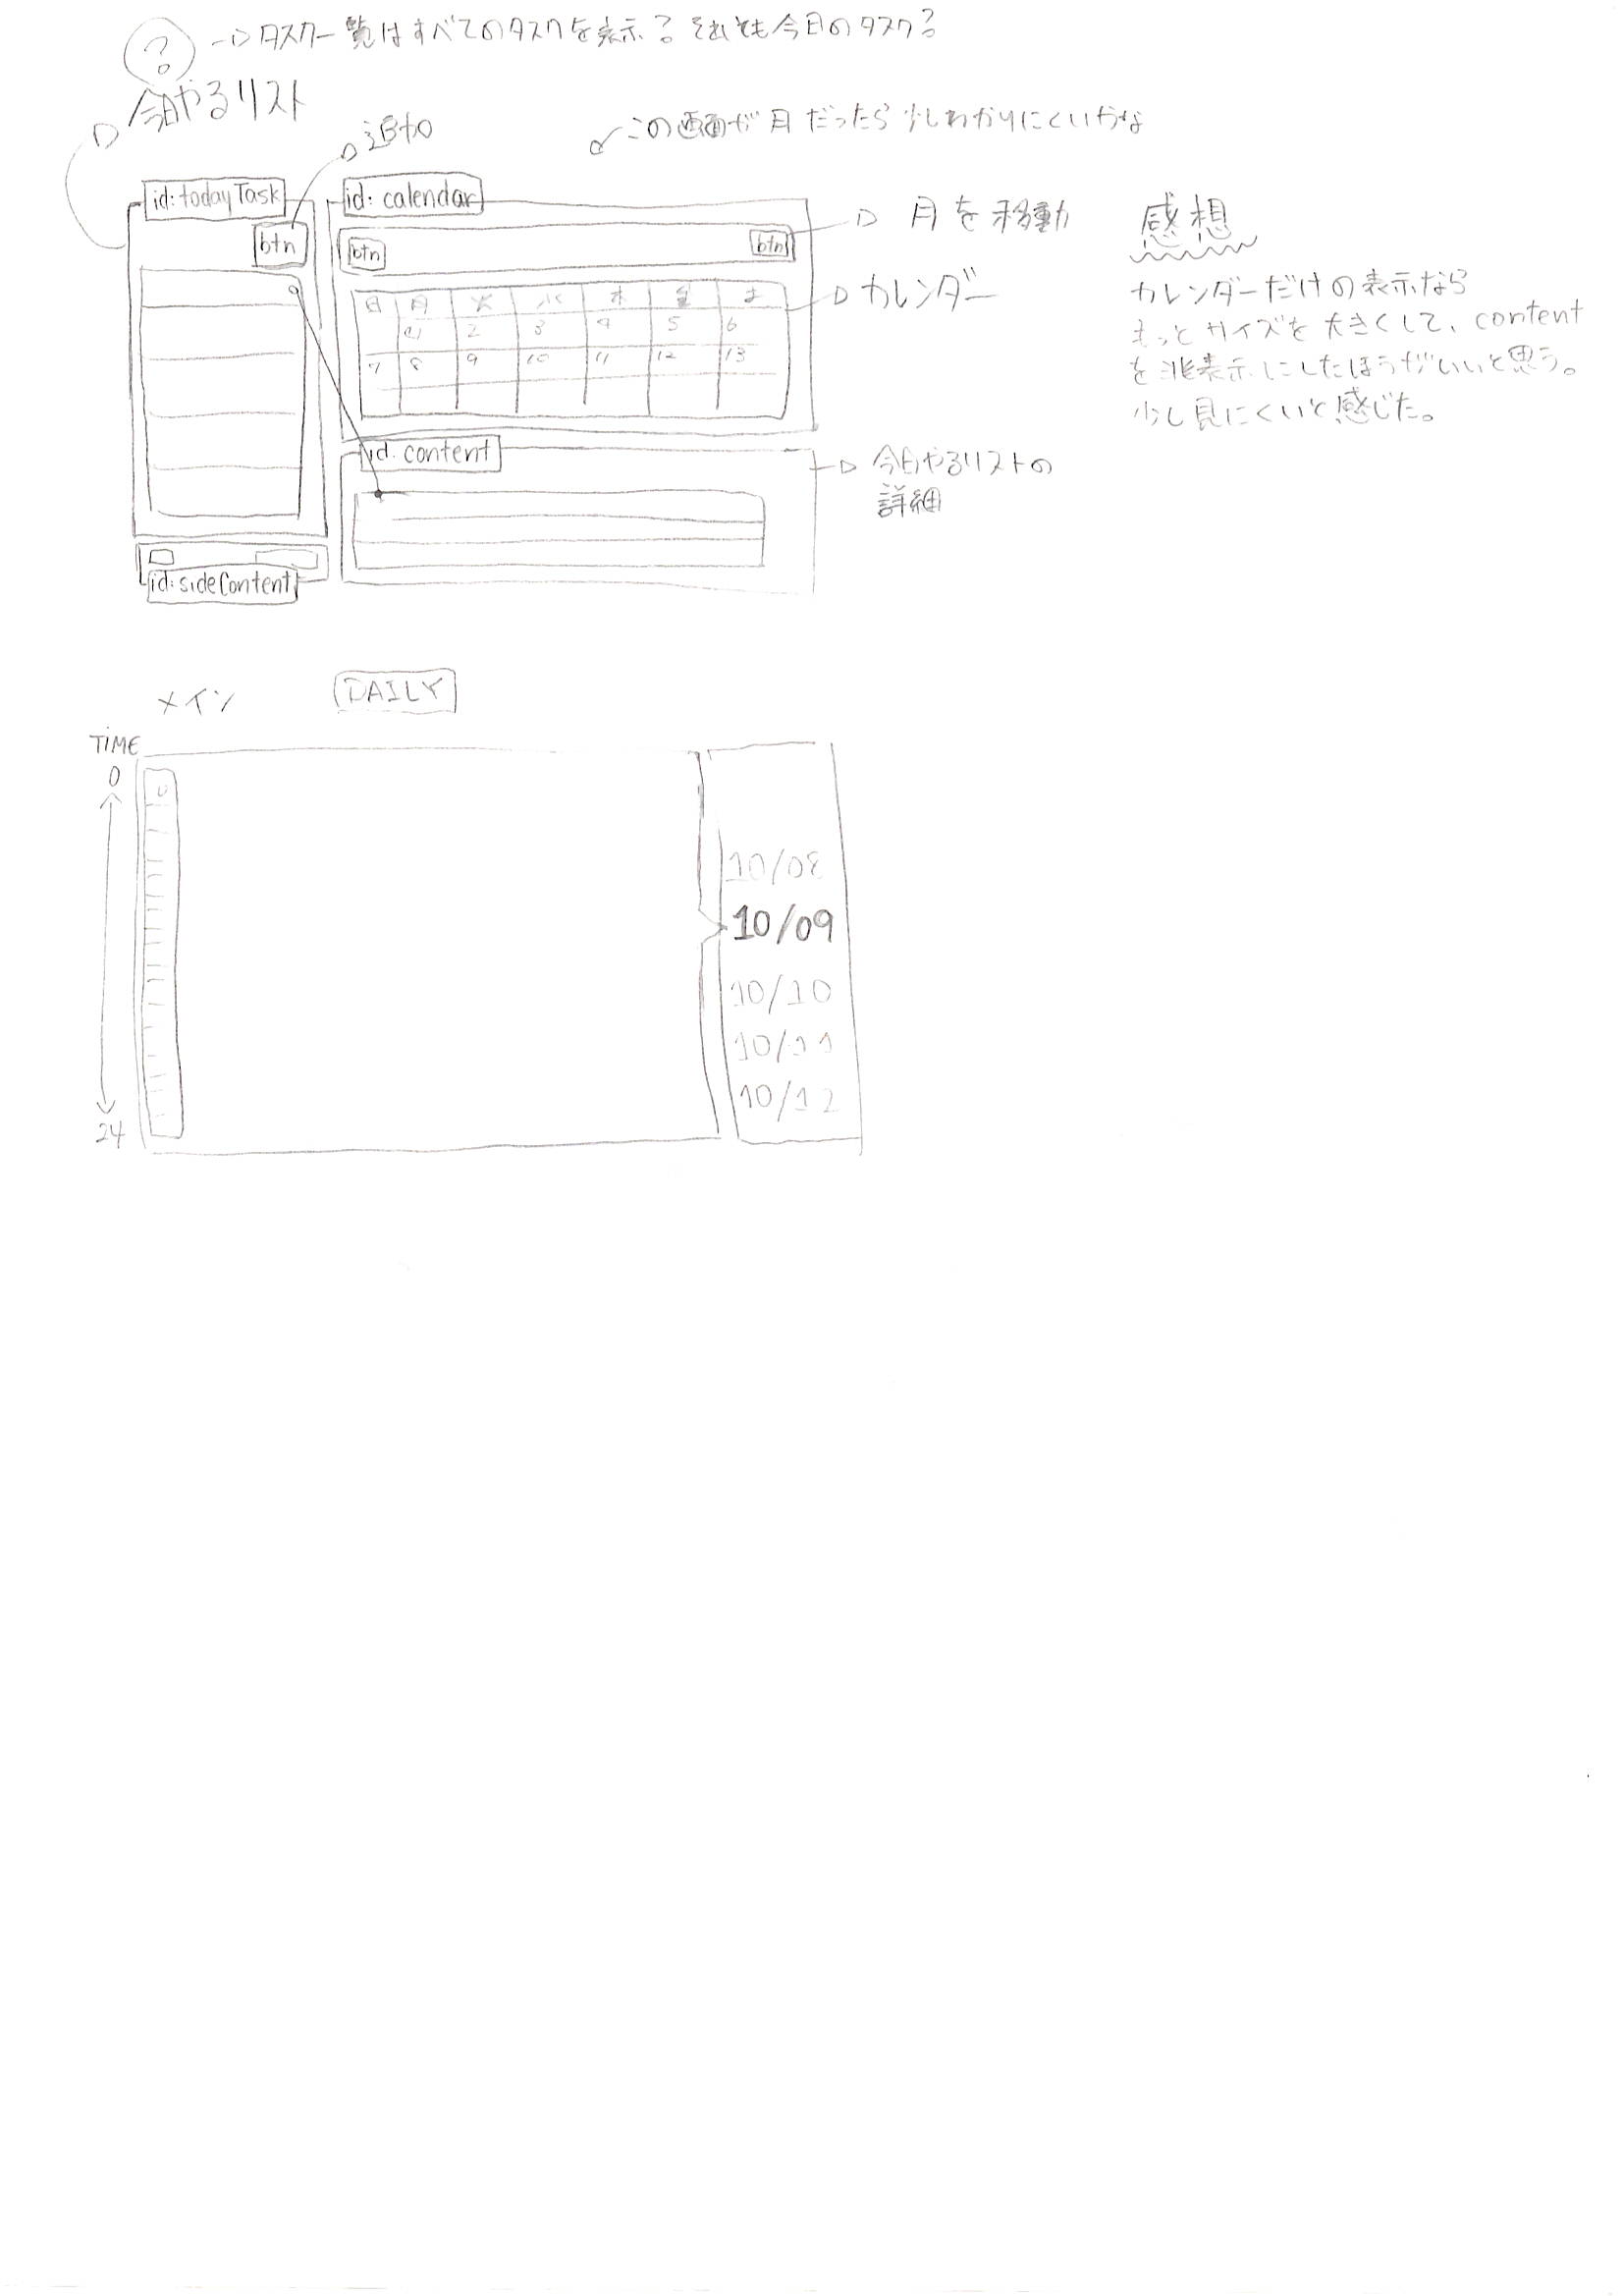 ?
→タスク一覧はすべてのタスクを表示?それとも今日のタスク?
今日やるリスト
追加
この画面が月だったら少しわかりにくいかな
id:todayTask
btn
id: calendar
btn
btn
月を移動
カレンダー
日 月 火 水 木 金 土
1 2 3 4 5 6
7 8 9 10 11 12 13
id: content
今日やるリストの
詳細
id:sideContent
感想
カレンダーだけの表示なら
もっとサイズを大きくして、content
を非表示にしたほうがいいと思う。
少し見にくいと感じた。
メイン
DAILY
TIME
0
0
24
10/08
10/09
10/10
10/11
10/12